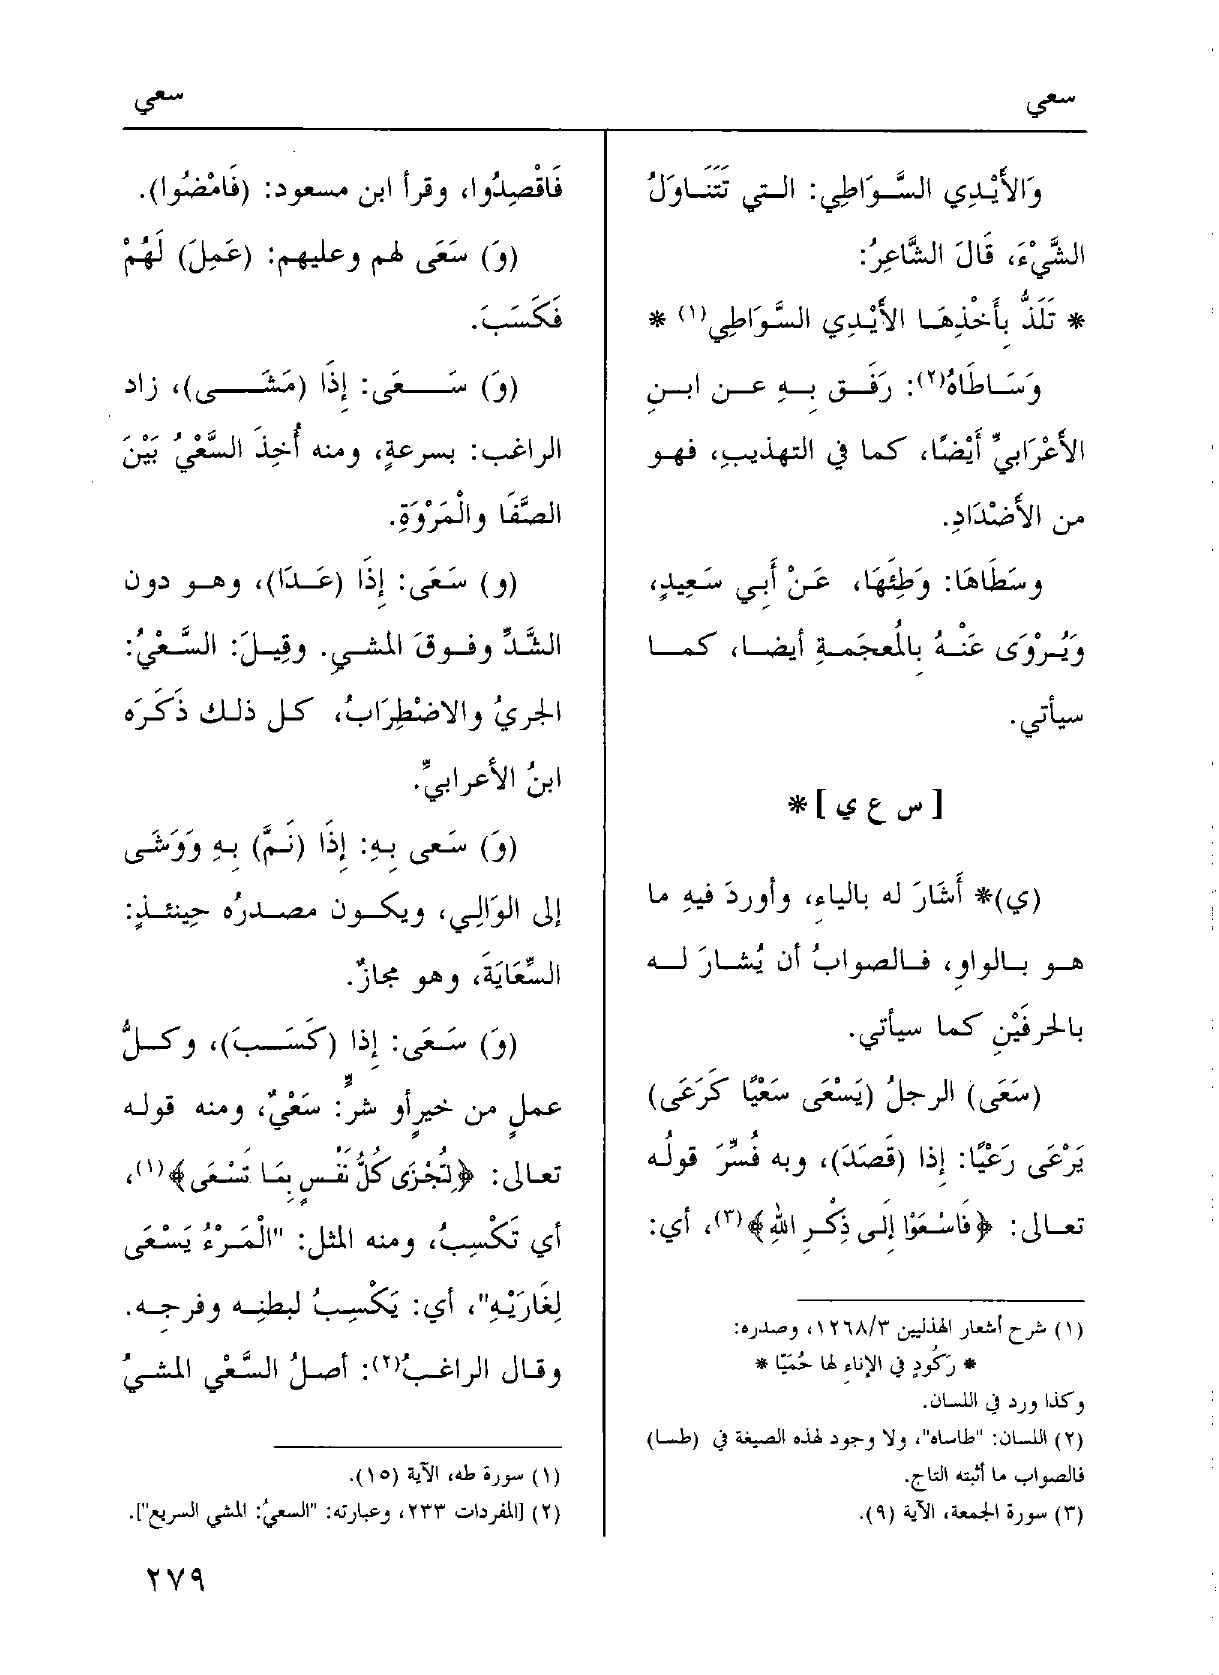 سعي
سعي
وَالأَيْدِي السَّوَاطِي: التي تَتَنَاوَلُ
الشَّيْءَ، قَالَ الشَّاعِرُ:
* تَلَذُّ بِأَخْذِهَا الأَيْدِي السَّوَاطِي(١) *
وَسَاطَاهُ(٢): رَفَق بِهِ عن ابنِ
الأَعْرَابيِّ أَيْضًا، كما في التهذيبِ، فهو
من الأَضْدَادِ.
وسَطَاهَا: وَطِئَهَا، عَنْ أَبي سَعِيدٍ،
وَيُرْوَى عَنْهُ بِالْمُعجَمةِ أيضا، كما
سيأتي.
[ س ع ي ] *
(ي)* أَشَارَ له بالياءِ، وأوردَ فيهِ ما
هو بالواوِ، فالصوابُ أن يُشارَ له
بالحرفَيْنِ كما سيأتي.
(سَعَى) الرجلُ (يَسْعَى سَعْيًا كَرَعَى)
يَرْعَى رَعْيًا: إذا (قَصَدَ)، وبه فُسِّرَ قولُه
تعالى: ﴿فَاسْعَوْا إِلَى ذِكْرِ اللهِ﴾(٣)، أي:
(١) شرح أشعار الهذليين ١٢٦٨/٣، وصدره:
* رَكُودٍ في الإناءِ لها حُمَيَّا *
وكذا ورد في اللسان.
(٢) اللسان: "طاساه"، ولا وجود لهذه الصيغة في (طسا)
فالصواب ما أثبته التاج.
(٣) سورة الجمعة، الآية (٩).
فَاقْصِدُوا، وقرأ ابن مسعود: (فَامْضُوا).
(وَ) سَعَى لهم وعليهم: (عَمِلَ) لَهُمْ
فَكَسَبَ.
(وَ) سَعَى: إِذَا (مَشَى)، زاد
الراغب: بسرعةٍ، ومنه أُخِذَ السَّعْيُ بَيْنَ
الصَّفَا والْمَرْوَةِ.
(و) سَعَى: إِذَا (عَدَا)، وهو دون
الشَّدِّ وفوقَ المشيِ. وقِيلَ: السَّعْيُ:
الجريُ والاضْطِرَابُ، كل ذلك ذَكَرَه
ابنُ الأعرابيِّ.
(وَ) سَعى بِهِ: إِذَا (نَمَّ) بِهِ وَوَشَى
إلى الوَالِي، ويكون مصدرُه حِينئذٍ:
السِّعَايَةَ، وهو مجازٌ.
(وَ) سَعَى: إذا (كَسَبَ)، وكلُّ
عملٍ من خيرٍ أو شرٍّ: سَعْيٌ، ومنه قوله
تعالى: ﴿لِتُجْزَى كُلُّ نَفْسٍ بِمَا تَسْعَى﴾(١)،
أي تَكْسِبُ، ومنه المثل: "الْمَرْءُ يَسْعَى
لِغَارَيْهِ"، أي: يَكْسِبُ لبطنِه وفرجِه.
وقال الراغبُ(٢): أصلُ السَّعْي المشيُ
(١) سورة طه، الآية (١٥).
(٢) [المفردات ٢٣٣، وعبارته: "السعيُ: المشي السريع"].
٢٧٩